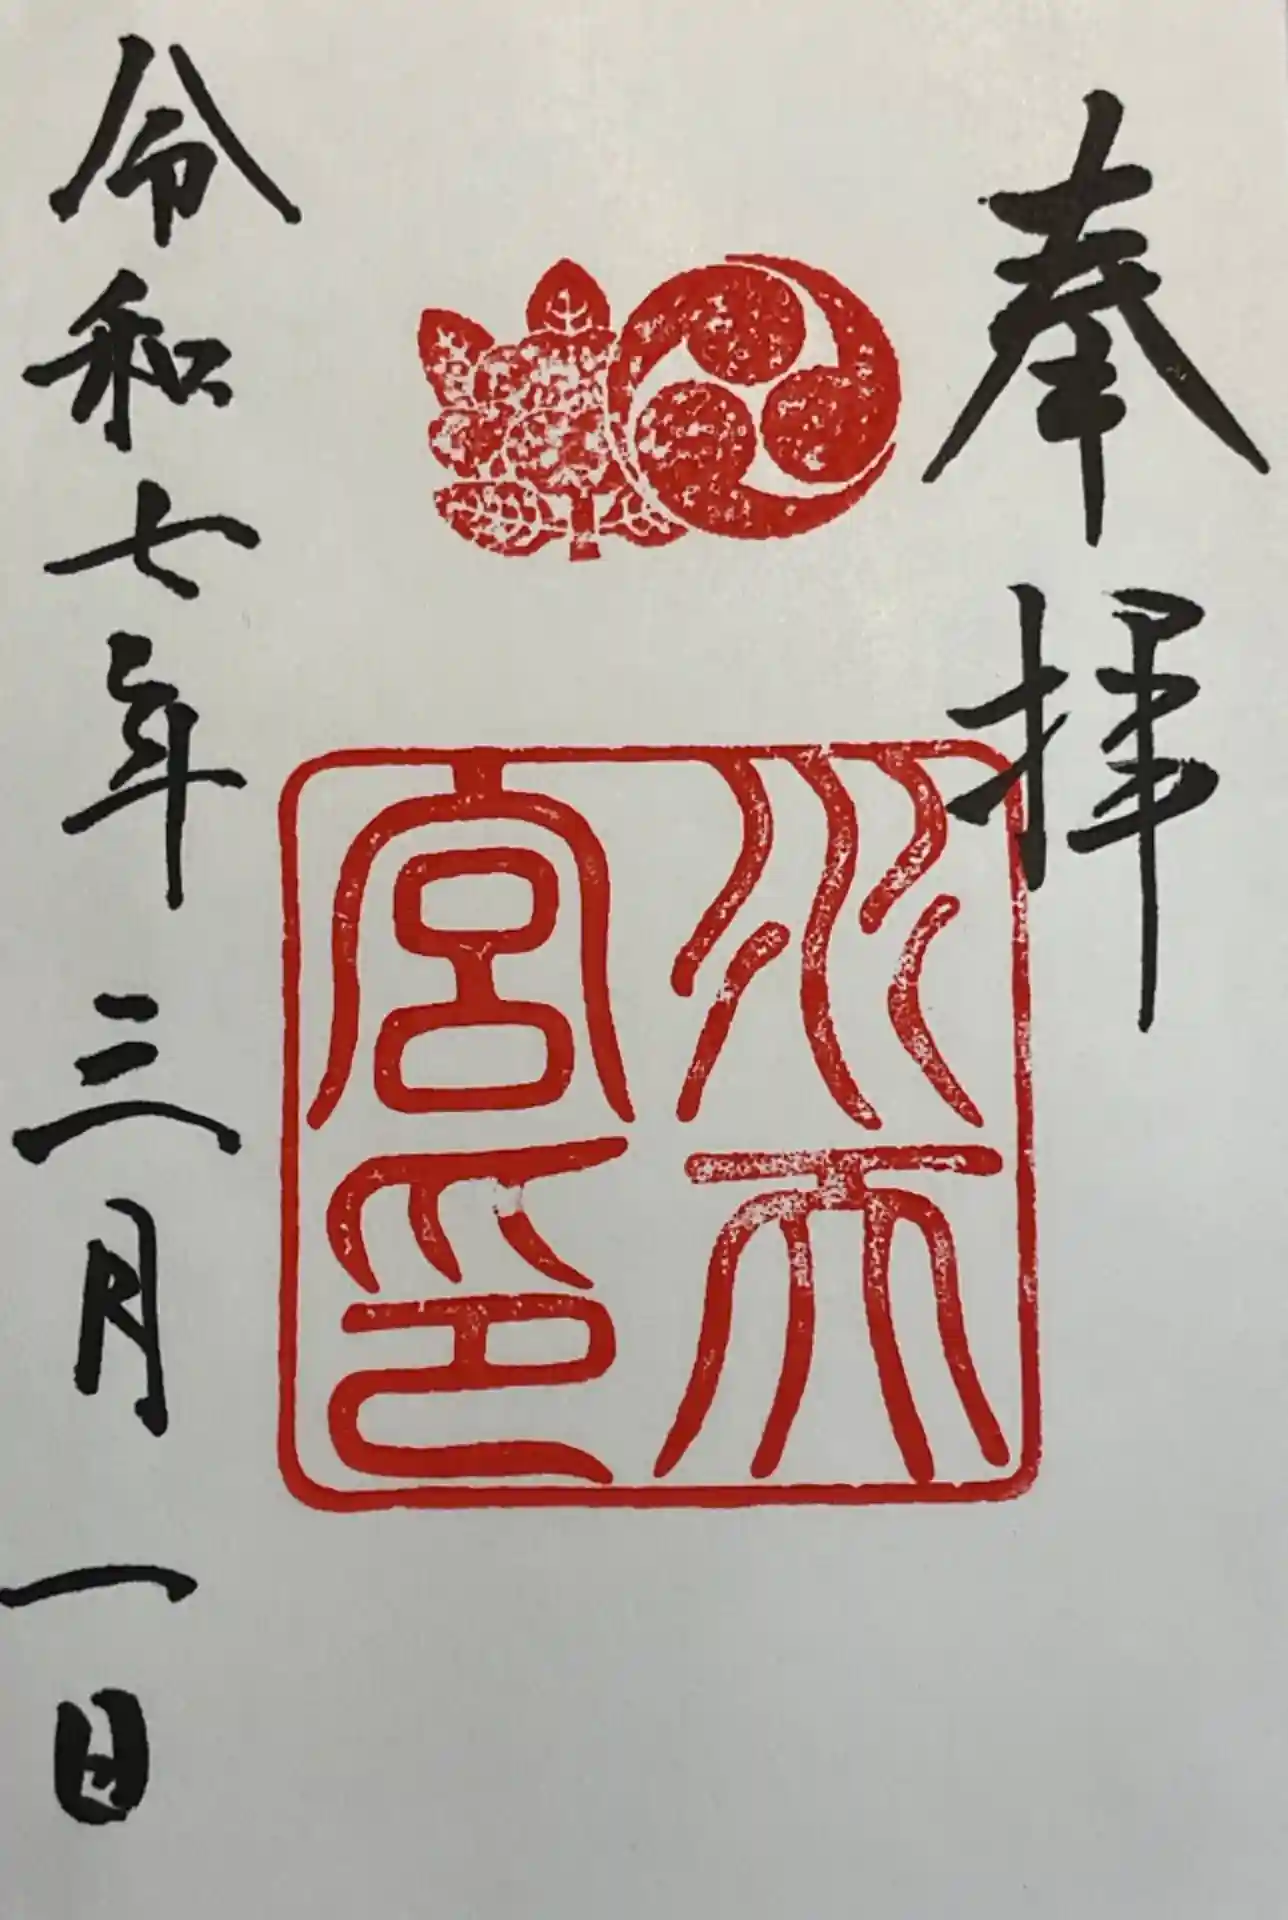 奉拝
水天
宮印
令和七年三月一日